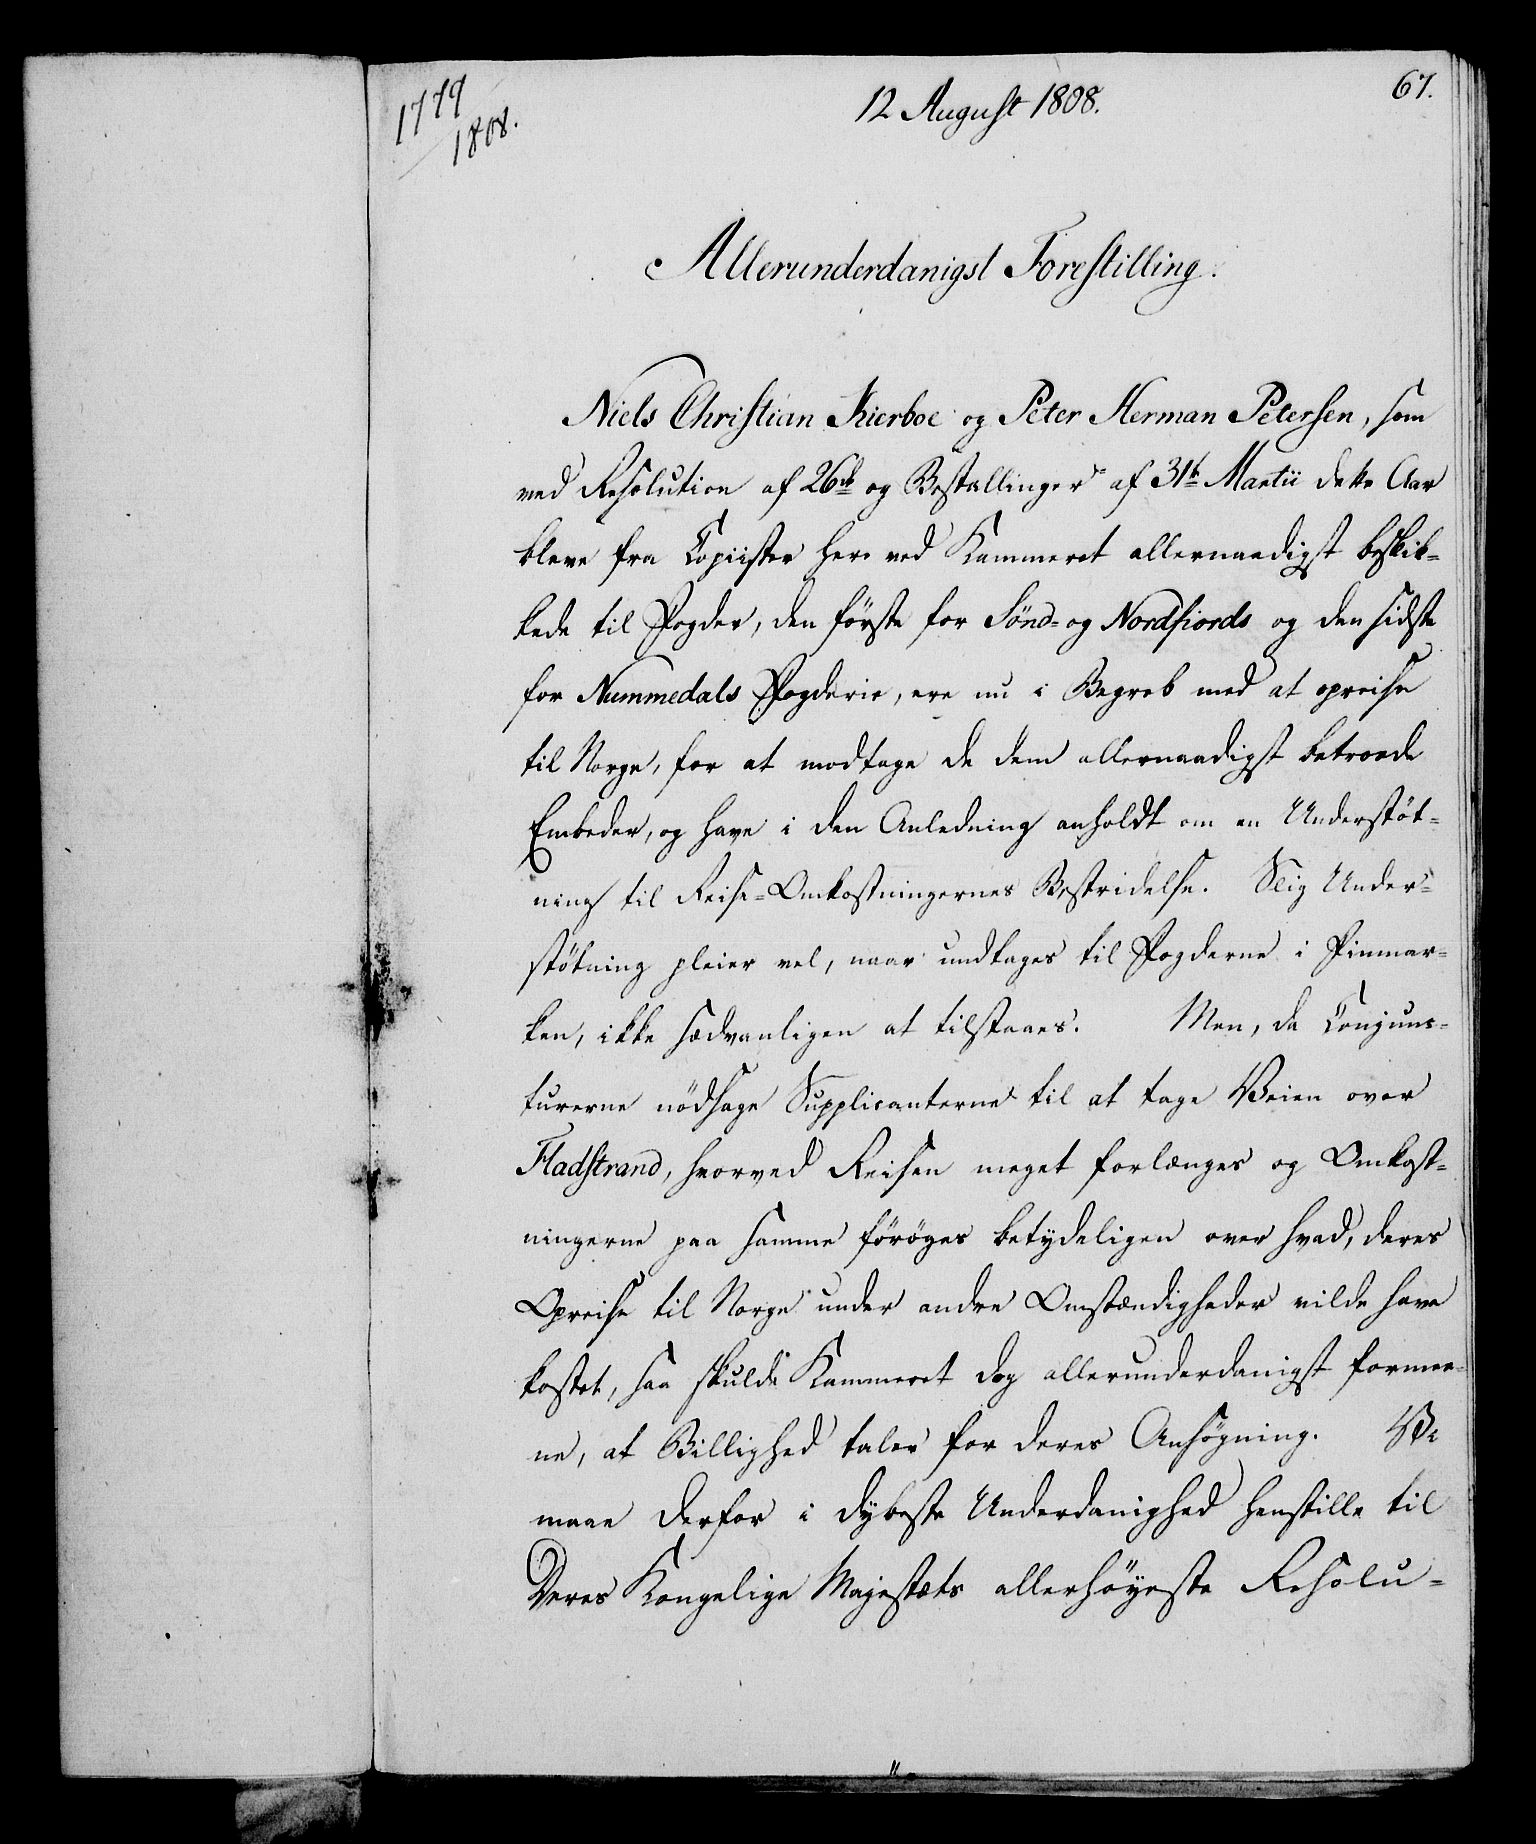 1779
1808.
12 August 1808.
67.
Allerunderdanigst Forestilling.
Niels Christian Kierboe og Peter Herman Petersen, som
ved Resolution af 26de og Bestallinger af 31te Martii dette Aar
bleve fra Copiister her ved Kammeret allernaadigst beskik-
kede til Fogder, den förste for Sönd- og Nordfiords og den sidste
for Nummedals Fogderie, ere nu i Begreb med at opreise
til Norge, for at modtage de dem allernaadigst betroede
Embeder, og have i den Anledning anholdt om en Understöt-
ning til Reise-Omkostningernes Bestridelse. Slig Under-
stötning pleier vel, naar undtages til Fogderne i Finmar-
ken, ikke sædvanligen at tilstaaes. Men, da Conjunc-
turerne nödsage Supplicanterne til at tage Veien over
Fladstrand, hvorved Reisen meget forlænges og Omkost-
ningerne paa samme foröges betydeligen over hvad, deres
Opreise til Norge under andre Omstændigheder vilde have
kostet, saa skulde Kammeret dog allerunderdanigst formee-
ne, at Billighed taler for deres Ansögning. Vi
maae derfor i dybeste Underdanighed henstille til
Deres Kongelige Majestæts allerhöyeste Resolu-